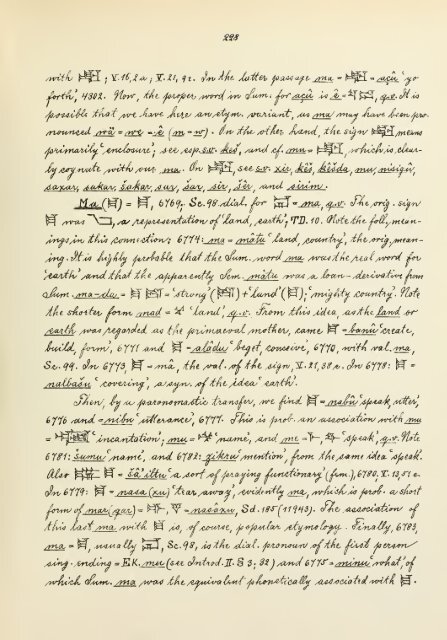 223
with 𒊬; V. 16, 2a; V. 21, 9c. In the latter passage ma = 𒊬 = açû 'go
forth', 4302. Now, the proper word in Sum. for açû is ê = q.v. It is
possible that we have here an elym. variant, as ma may have been pro-
nounced wâ = we = ê (m = w). On the other hand, the sign 𒊬 means
primarily 'enclosure'; see esp. s.v. keš, and cf. mu = 𒊬, which is clear-
ly cognate with our ma. On 𒊬, see s.v. xir, kêš, kêšda, mu, nisigû,
saxar, sakar, šakar, sar, šar, sir, šír, and sirim.
Ma (𒈠) = 𒈠, 6769, Sc. 98. dial. for = ma, q.v. The orig. sign
𒈠 was , a representation of 'land, earth'; TD. 10. Note the foll. mean-
ings in this connection: 6774: ma = mâtu 'land, country', the orig. mean-
ing. It is highly probable that the Sum. word ma was the real word for
'earth' and that the apparently Sem. mâtu was a loan-derivative from
Sum. ma-da = 𒈠 = 'strong' () + 'land' (𒈠); 'mighty country'. Note
the shorter form mad = 'land', q.v. From this idea, as the land or
earth was regarded as the primaeval mother, came 𒈠 = banû 'create,
build, form', 6771 and 𒈠 = alâdu 'beget, conceive', 6770, with val. ma,
Sc. 99. In 6773, 𒈠 = mâ, the val. of the sign, V. 21, 38 e. In 6778: 𒈠 =
nalbašu 'covering', a syn. of the idea 'earth'.
Then, by a paronomastic transfer, we find 𒈠 = nabû 'speak, utter',
6776 and = nibu 'utterance', 6777. This is prob. an association with mu
= 'incantation'; mu = 'name', and me = , 'speak', q.v. Note
6781: šumu 'name', and 6782: zikru 'mention', from the same idea 'speak'.
Also 𒈠 = ša'iltu 'a sort of praying functionary' (fem.), 6780, V. 13, 51 e.
In 6779: 𒈠 = nasaxu 'tear away', evidently ma, which is prob. a short
form of mar (gar) = , = nasâxu, Sd. 185 (11943). The association of
this last ma with 𒈠 is, of course, popular etymology. Finally, 6783,
ma = 𒈠, usually , Sc. 98, is the dial. pronoun of the first person
sing. ending = EK. mu (see Introd. II. § 3; 32) and 6775 = minu 'what', of
which Sum. ma was the equivalent phonetically associated with 𒈠.